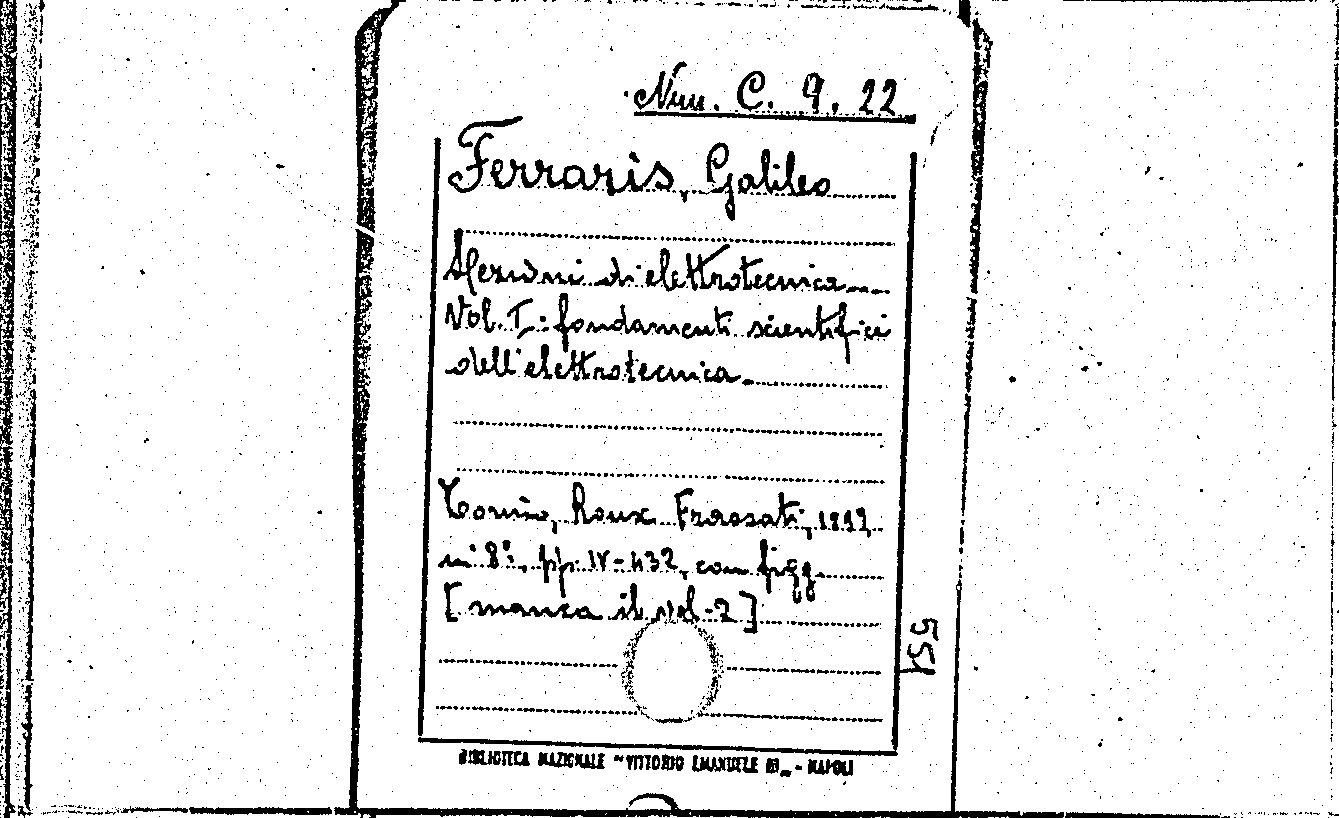 Nun. C. 9. 22
Ferraris, Galileo
Lezioni di elettrotecnica
Vol. I: fondamenti scientifici
dell'elettrotecnica.
Torino, Roux Frassati, 1899
in 8°, pp. IV-432, con figg.
[manca il vol-2]
551
BIBLIOTECA NAZIONALE "VITTORIO EMANUELE III" - NAPOLI